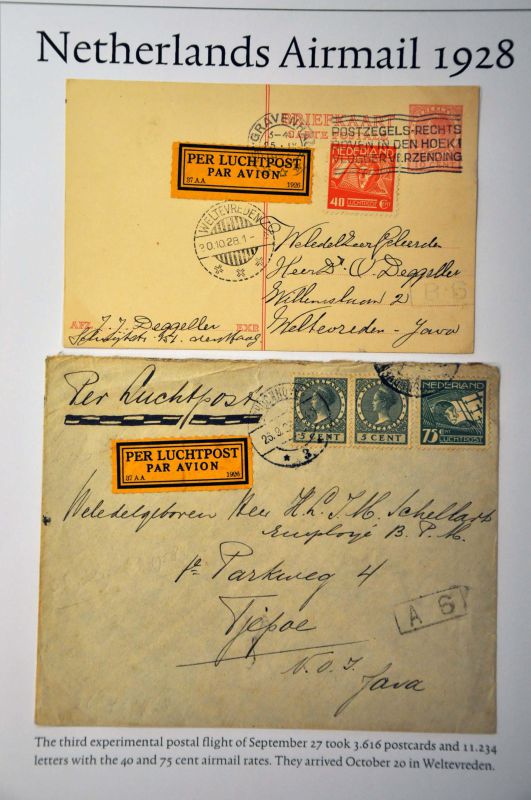 Netherlands Airmail 1928
BRIEFKAART
CARTE POSTALE
'S GRAVENHAGE
POSTZEGELS-RECHTS
BOVEN IN DEN HOEK!
VLUGGER VERZENDING
PER LUCHTPOST
PAR AVION
37 AA 1926
NEDERLAND
40
LUCHTPOST
WELTEVREDEN
20.10.28.1-
WeledelZeerGeleerden
Heer Dr O. Deggeller
Willemslaan 2
Weltevreden - Java
B 6
AFZ. J. J. Deggeller EXP.
Per Luchtpost
5 CENT
5 CENT
NEDERLAND
75
LUCHTPOST
PER LUCHTPOST
PAR AVION
37 AA 1926
Weledelgeboren Heer H. L. J. M. Schellart
Employé B. P. M.
Parkweg 4
Tjepoe
A 6
N. O. I.
Java
The third experimental postal flight of September 27 took 3.616 postcards and 11.234
letters with the 40 and 75 cent airmail rates. They arrived October 20 in Weltevreden.